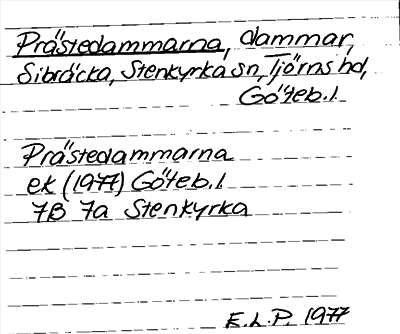 Prästedammarna, dammar,
Sibräcka, Stenkyrka sn, Tjörns hd,
Göteb. l.
Prästedammarna
ek (1977) Göteb. l.
7B 7a Stenkyrka
E.L.P. 1977